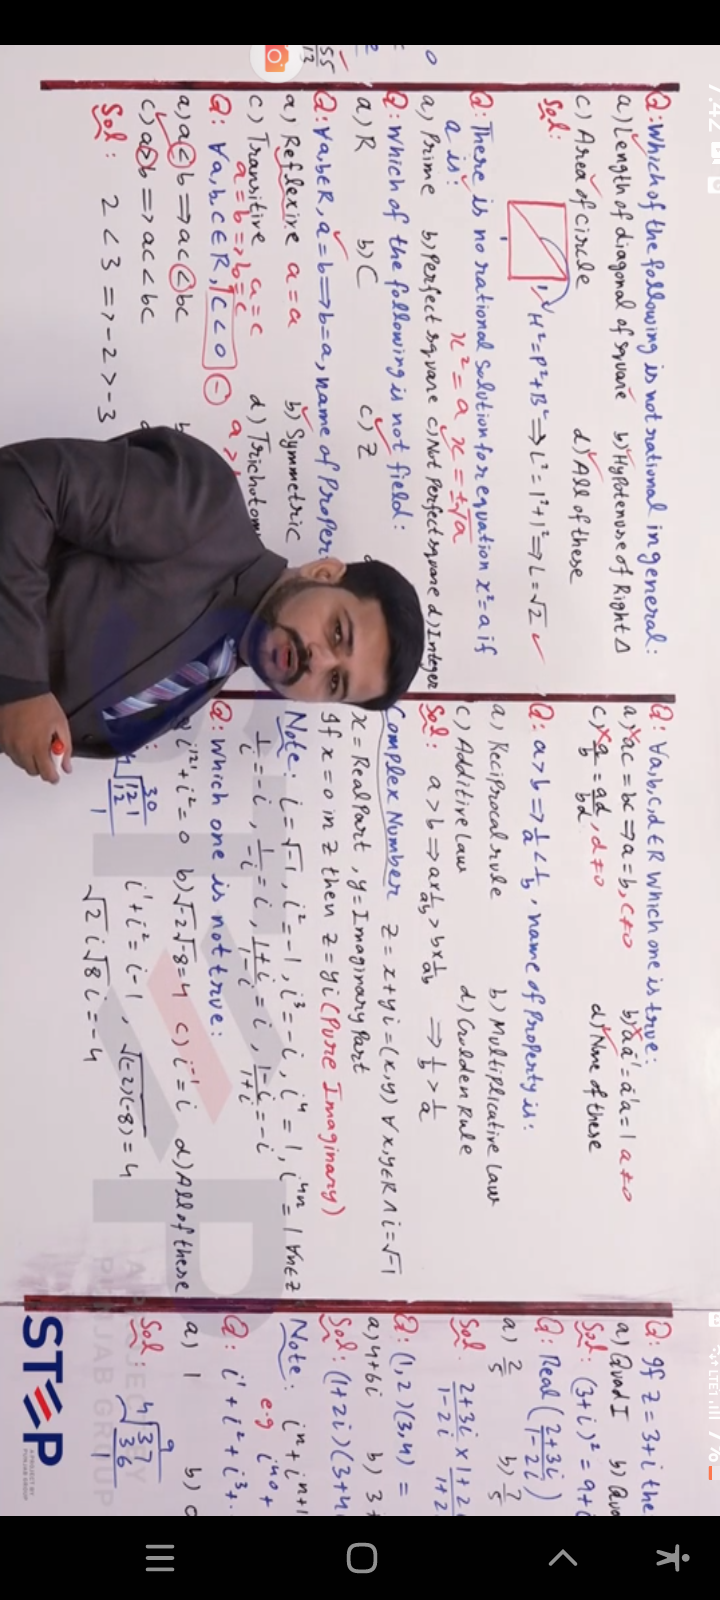 7:42
55
12
Q: Which of the following is not rational in general:
a) Length of diagonal of square b) Hypotenuse of Right Δ
c) Area of circle d) All of these
Sol: H²=P²+B² ⇒ L²=1²+1² ⇒ L=√2
1
1
Q: There is no rational solution for equation x²=a if
a is: x²=a x=±√a
a) Prime b) Perfect square c) Not Perfect square d) Integer
Q: Which of the following is not field:
a) R b) C c) Z
Q: ∀a,b∈R, a=b⇒b=a, name of Proper
a) Reflexive a=a b) Symmetric
c) Transitive a=c d) Trichotom
a=b⇒b=c
Q: ∀a,b,c∈R, c<0 (-)
a) a<b⇒ac<bc
c) a>b⇒ac<bc
Sol: 2<3⇒-2>-3
Q: ∀a,b,c,d∈R Which one is true:
a) ac=bc⇒a=b, c≠0 b) aa⁻¹=a⁻¹a=1 a≠0
c) a/b=ad/bd, d≠0 d) None of these
Q: a>b⇒1/a<1/b, name of Property is:
a) Reciprocal rule b) Multiplicative law
c) Additive Law d) Gulden Rule
Sol: a>b⇒a×1/ab>b×1/ab ⇒1/b>1/a
Complex Number z=x+yi=(x,y) ∀x,y∈R∧i=√-1
x=Real Part, y=Imaginary Part
If x=0 in z then z=yi (Pure Imaginary)
Note: i=√-1, i²=-1, i³=-i, i⁴=1, i⁴ⁿ=1 ∀n∈Z
1/i=-i, 1/-i=i, 1+i/1-i=i, 1-i/1+i=-i
Q: Which one is not true:
i¹²¹+i²=0 b) √-2√-8=4 c) i⁻¹=i d) All of these
30
121
12
1
i¹+i²=i-1, √(-2)(-8)=4
√2i√8i=-4
Q: If z=3+i the
a) Quad I b) Qua
Sol: (3+i)²=9+i
Q: Real(2+3i/1-2i)
a) 2/5 b) 7/5
Sol. 2+3i/1-2i×1+2i/1+2
Q: (1,2)(3,4)=
a) 4+6i b) 3+
Sol: (1+2i)(3+4i
Note: iⁿ+iⁿ⁺¹
e.g i⁴⁰+
Q: i¹+i²+i³+..
a) 1 b) 0
Sol: 9
4 37
36
1
STEP
A PROJECT BY
PUNJAB GROUP
LTE
7%